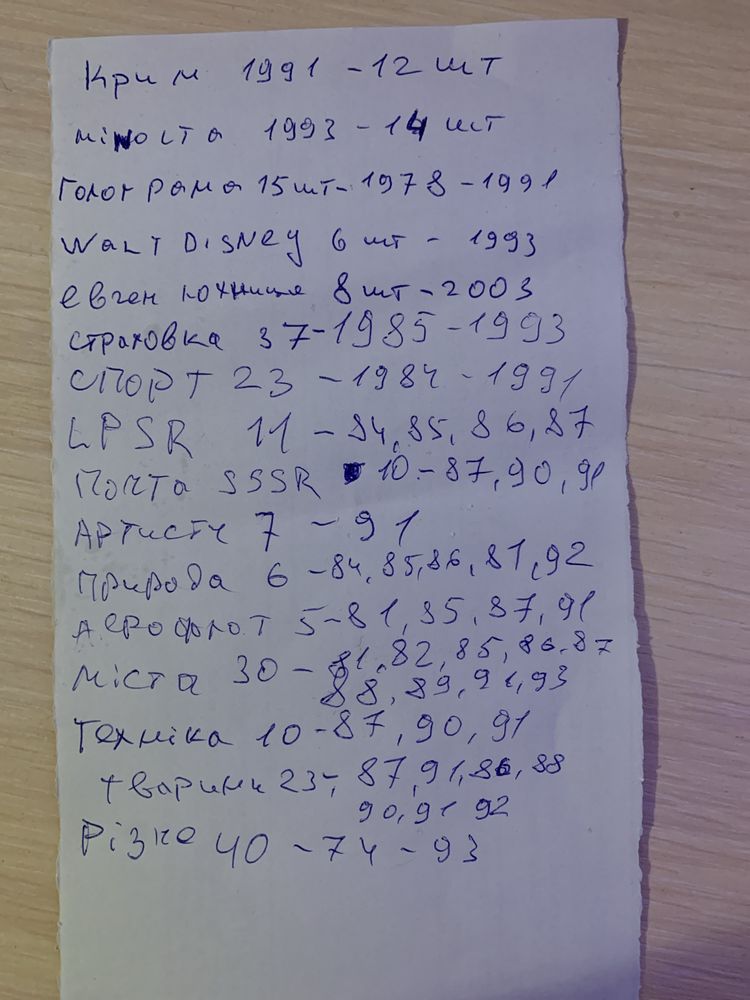 Крим 1991 - 12 шт
міNоста 1993 - 14 шт
голограма 15шт - 1978 - 1991
WALT DISNEY 6 шт - 1993
евген юхниця 8 шт - 2003
страховка 37 - 1985 - 1993
СПОРТ 23 - 1984 - 1991
LPSR 11 - 84, 85, 86, 87
Почта SSSR 10 - 87, 90, 91
Артисти 7 - 91
природа 6 - 84, 85, 86, 81, 92
Аерофлот 5 - 81, 85, 87, 91
міста 30 - 81, 82, 85, 86, 87
88, 89, 91, 93
Техніка 10 - 87, 90, 91
тварини 23 - 87, 91, 86, 88
90, 91 92
Різне 40 - 74 - 93